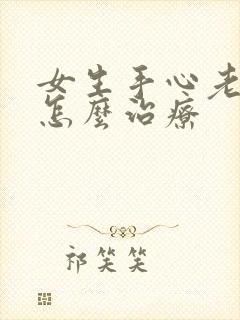 女生手心老
怎麼治療
祁笑笑